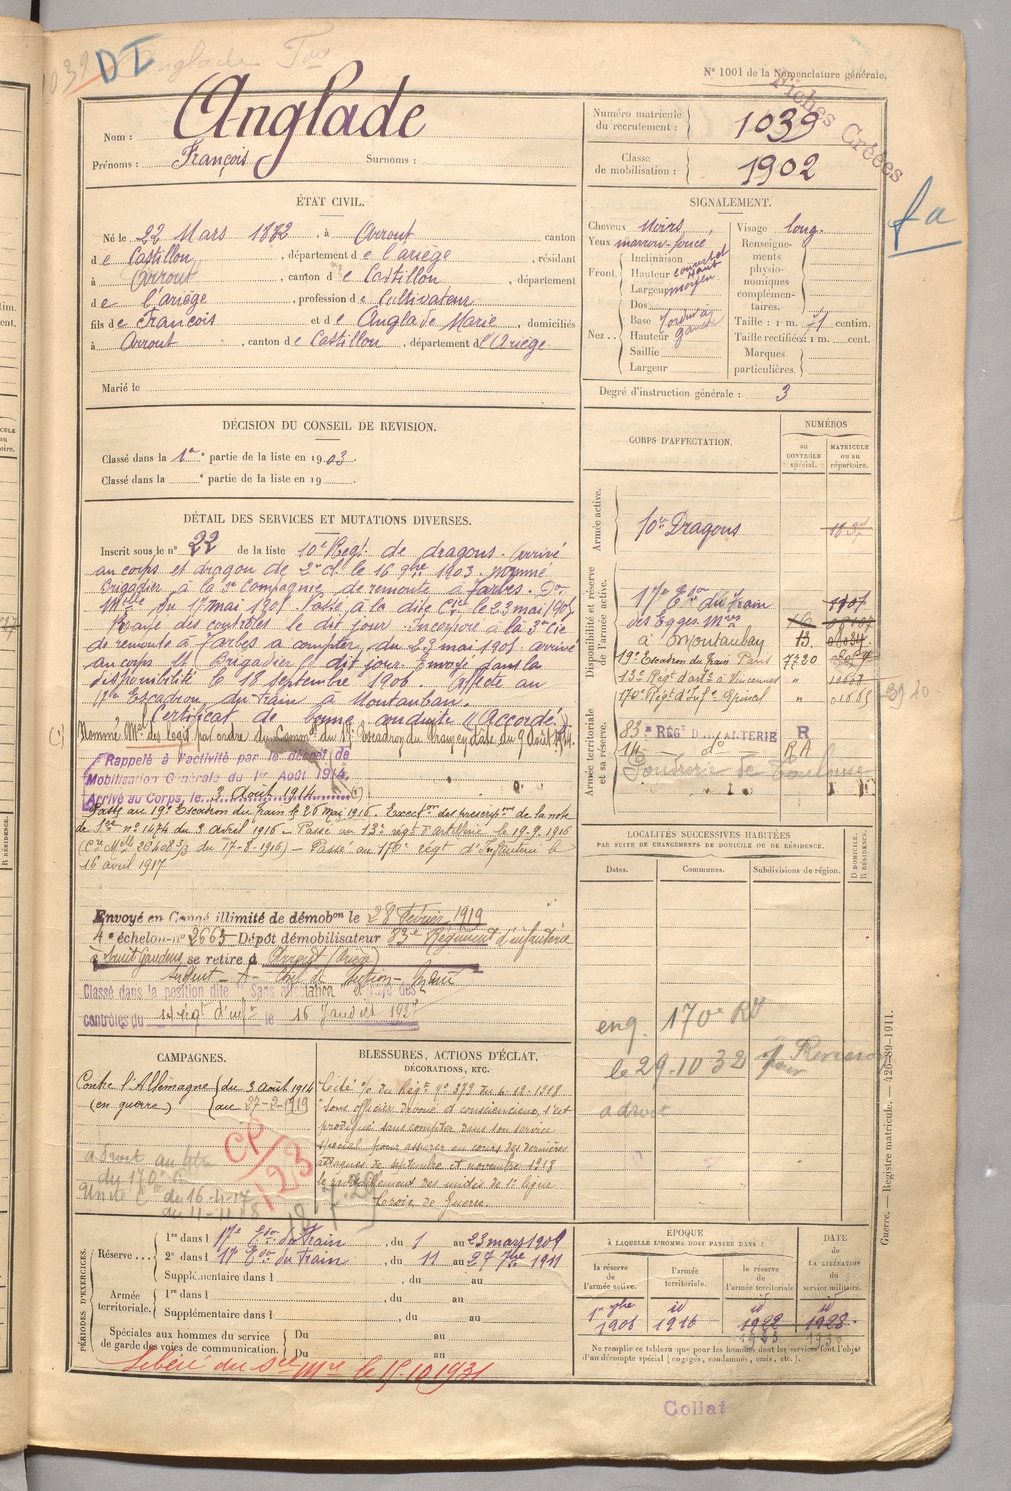 1039 DI Anglade
N° 1001 de la Nomenclature générale.
Fiches Créées
Nom : Anglade
Prénoms : François Surnoms :
Numéro matricule du recrutement : 1039
Classe de mobilisation : 1902
fa
ÉTAT CIVIL.
Né le 22 Mars 1882, à Arrout canton
de Castillon, département de l'ariège, résidant
à Arrout, canton de Castillon, département
de l'ariège, profession de Cultivateur
fils de François et de Anglade Marie, domiciliés
à Arrout, canton de Castillon, département d l'Ariège.
Marié le
SIGNALEMENT.
Cheveux Noirs,
Yeux marron-foncé
Front. Inclinaison
Hauteur haut
Largeur moyen
Nez.. Dos
Base
Hauteur gauche
Saillie
Largeur
Visage long.
Renseignements physionomiques complémentaires.
Taille : 1 m. 71 centim.
Taille rectifiée : 1 m. cent.
Marques particulières.
Degré d'instruction générale : 3
DÉCISION DU CONSEIL DE REVISION.
Classé dans la 1re partie de la liste en 1903.
Classé dans la ° partie de la liste en 19 .
DÉTAIL DES SERVICES ET MUTATIONS DIVERSES.
Inscrit sous le n° 22 de la liste 10e Régt de dragons. Arrivé
au corps et dragon de 2e cl. le 16 9bre 1903. Nommé
Brigadier à la 3e Compagnie de remonte à Tarbes. Don
Mlle du 17 mai 1905. Passé à la dite Cie le 23 mai 1905
Rayé des contrôles le dit jour. Incorporé à la 3e Cie
de remonte à Tarbes à compter du 23 mai 1905 arrivé
au corps et Brigadier le dit jour. Envoyé dans la
disponibilité le 18 septembre 1906. Affecté au
17e Escadron du train à Montauban.
Certificat de bonne conduite "Accordé."
(1) Nommé Mal des logis par ordre du Commt du 17e Escadron du Train, en date du 9 Août 1914.
Rappelé à l'activité par le décret de
Mobilisation Générale du 1er Août 1914.
Arrivé au Corps, le 3 Août 1914 (1)
Passé au 19e Escadron du train le 26 mai 1916. Execton des prescriptons de la note
de Sce n° 1474 du 3 avril 1916 - Passé au 13e régt d'artillerie le 19-9-1916
(Cre Mlle 26408 3/3 du 17-8-1916) - Passé au 170e régt d'Infanterie le
16 avril 1917
Envoyé en Congé illimité de démobon le 28 Février 1919
4e échelon n° 2663 Dépôt démobilisateur 83e Régiment d'infanterie
à Saint Gaudens se retire à Arrout (Ariège)
Classé dans la position dite "Sans affectation" et rayé des
contrôles du régt d'infie le 16 Janvier 1927
CORPS D'AFFECTATION.
NUMÉROS
au CONTRÔLE spécial.
MATRICULE ou au répertoire.
Armée active.
10e Dragons
Disponibilité et réserve de l'armée active.
17e Eson du Train
des Eqages Mres
à Montauban 13
19e Escadron du Train Paris 7720
13e Régt d'artie à Vincennes "
170e Régt d'Infie Epinal " 01665
Armée territoriale et sa réserve.
83e RÉGT D'INFANTERIE R
14 do RA
Poudrerie de Toulouse
LOCALITÉS SUCCESSIVES HABITÉES
PAR SUITE DE CHANGEMENTS DE DOMICILE OU DE RÉSIDENCE.
Dates. Communes. Subdivisions de région. D DOMICILE. R RÉSIDENCE.
eng. 170e RI
le 29.10 32 pour Pension
a droit
CAMPAGNES.
Contre l'Allemagne (du 3 août 1914
(en guerre) (au 27-2-1919
CP/123
a droit au titre
du 170e
Unité Cte du 16-4-17
du 11-11-18
BLESSURES, ACTIONS D'ÉCLAT,
DÉCORATIONS, ETC.
Cité o/ du Régt n° 379 du 6-12-1918
"Sous officier dévoué et consciencieux, s'est
prodigué sans compter dans son service
spécial pour assurer au cours des dernières
attaques de septembre et novembre 1918
le ravitaillement des unités de 1re ligne
Croix de Guerre.
PÉRIODES D'EXERCICES.
Réserve... 1re dans l 17e Eson du Train, du 1 au 23 mars 1909
2e dans l 17 Eson du Train, du 11 au 27 7bre 1911
Supplémentaire dans l , du au
Armée territoriale. 1re dans l , du au
Supplémentaire dans l , du au
Spéciales aux hommes du service de garde des voies de communication. Du au
Du au
Libéré du Sce Mre le 15-10 1931
ÉPOQUE
À LAQUELLE L'HOMME DOIT PASSER DANS :
la réserve de l'armée active. l'armée territoriale. la réserve de l'armée territoriale
DATE de LA LIBÉRATION du service militaire.
1er 9bre 1906 id 1916 id 1922 id 1928
Ne remplir ce tableau que pour les hommes dont les services font l'objet d'un décompte spécial (engagés, condamnés, omis, etc.).
Guerre. — Registre matricule. — 426-89-1911.
Collat